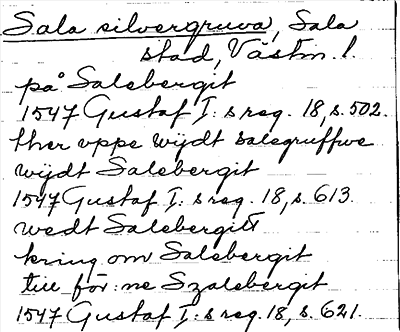 Sala silvergruva, Sala
stad, Västm. l.
på Salebergit
1547 Gustaf I:s reg. 18, s. 502.
ther vppe wijdt salegruffwe
wijdt Salebergit
1547 Gustaf I:s reg. 18, s. 613.
wedt Salebergitt
kring om Salebergit
till för:ne Szalebergit
1547 Gustaf I:s reg. 18, s. 621.